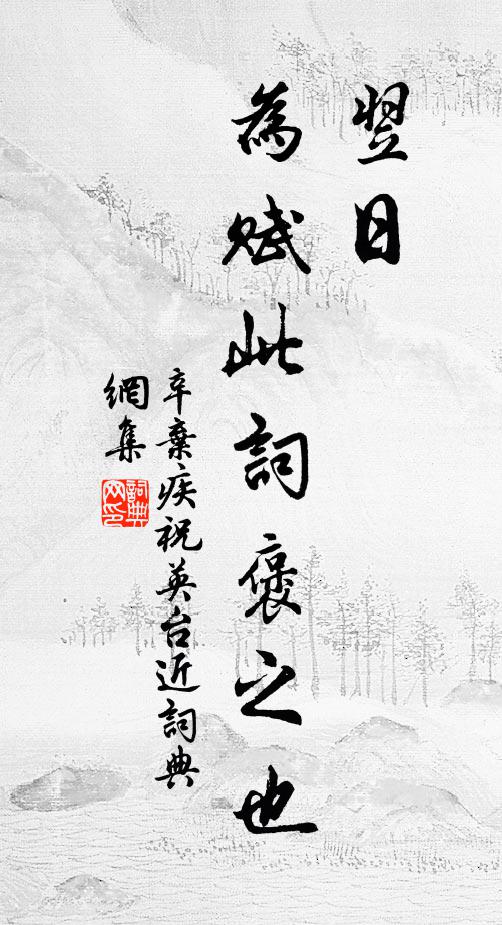 翌日
為賦此詞褒之也
辛棄疾祝英台近詞典
網集
詞典網印